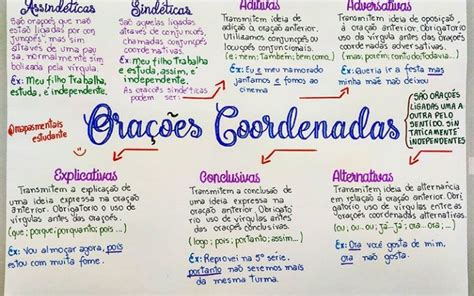 Assindéticas
São orações que não
estão ligadas por con
junções, mas sim
através de uma pau
sa, normalmente sim
bolizada pela vírgula.
Ex: Meu filho trabalha,
estuda, é independente.
Sindéticas
São aquelas ligadas
através de conjunções,
chamadas conjunções
coordenativas.
Ex: Meu filho trabalha
e estuda, assim, é
independente.
As orações sindéticas
podem ser:
Aditivas
Transmitem ideia de
adição à oração anterior.
Utilizamos conjunções ou
locuções conjuncionais.
(e; nem; também; bem como...)
Ex: Eu e meu namorado
jantamos e fomos ao
cinema
Adversativas
Transmitem ideia de oposição
à oração anterior. Obrigatório
o uso da vírgula antes das orações
coordenativas.
(mas; porém; contudo; todavia...)
Ex: Queria ir a festa mas
minha mãe não deixou
@mapasmentais
estudante
Orações Coordenadas
SÃO ORAÇÕES
LIGADAS UMA A
OUTRA PELO
SENTIDO. SIN
TATICAMENTE
INDEPENDENTES
Explicativas
Transmitem a explicação de
uma ideia expressa na oração
anterior. Obrigatório o uso de
vírgulas antes das orações.
(que; porque; porquanto; pois...)
Ex: Vou almoçar agora, pois
estou com muita fome.
Conclusivas
Transmitem a conclusão de
uma ideia expressa na
oração anterior. Obrigató
rio o uso de vírgulas antes
das orações conclusivas.
(logo; pois; portanto; assim...)
Ex: Reprovei na 5º série,
portanto não seremos mais
da mesma turma.
Alternativas
Transmitem ideia de alternância
em relação à oração anterior. Obri
gatório o uso de vírgulas entre as
orações coordenadas alternativas.
(ou; ou...ou; já...já; ora...ora...)
Ex: Ora você gosta de mim,
ora não gosta.